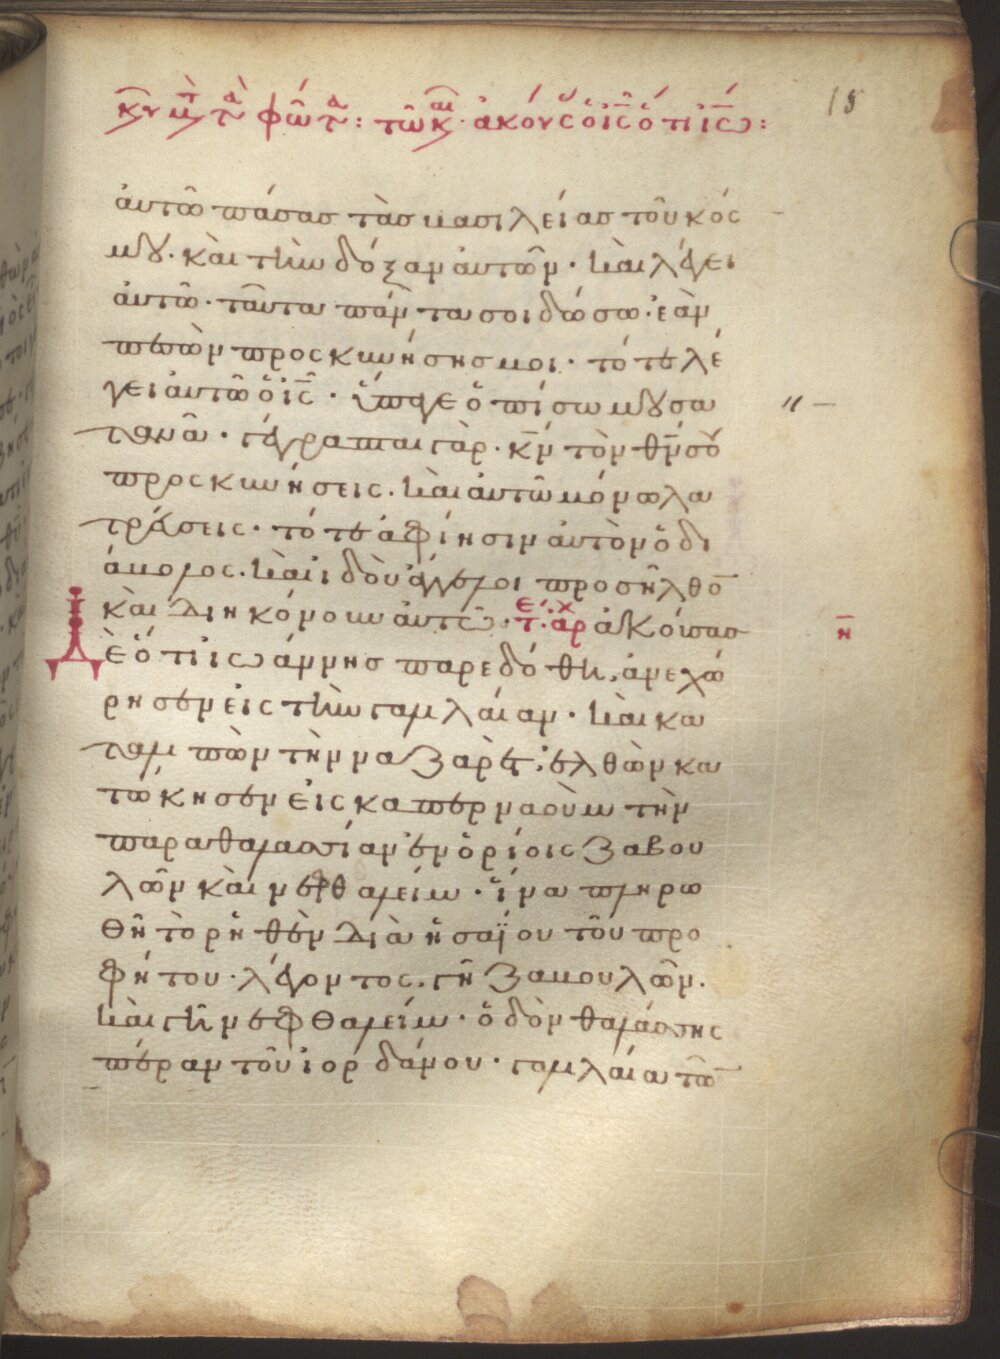 κυ μτ τα φωτα: τω κ αι ἀκούσ ὁ ις ὅτι ιω:
15
ἀυτῶ πάσασ τὰσ βασιλείασ τοῦ κόσ
μου· κὰι τὴν δόξαν ἀυτῶν· κὰι λέγει
ἀυτῶ· ταῦτα πάντα σοι δώσω· ἐὰν
πεσὼν προσκυνήσησ μοι· τότε λέ
γει ἀυτῶ ὁ ις̅· ὕπαγε ὀπίσω μου σα
τανᾶ· γέγραπται γὰρ· κ̅ν τὸν θ̅ν σοῦ
προσκυνήσεις· κὰι ἀυτῶ μόνω λα
τρεύσεις· τότε ἀφίησιν ἀυτὸν ὁ δι
άβολος· κὰι ἰδοὺ ἄγγελοι προσῆλθο̅
κὰι διηκόνουν ἀυτῶ· τε αρχ ἀκούσασ
η̅
δὲ ὅτι ἰωάννησ παρεδόθη, ἀνεχώ
ρησεν εἰς τὴν γαλιλάιαν· κὰι κα
ταλιπὼν τὴν ναζαρὲτ, ἐλθὼν κα
τώκησεν εἰς καπερναοὺμ τὴν
παραθαλασσίαν ἐν ὁρίοις ζαβου
λῶν κὰι νεφθαλείμ· ἵνα πληρω
θῆ τὸ ρηθὲν διὰ ἡσαΐου τοῦ προ
φήτου· λέγοντος· γῆ ζαβουλῶν·
κὰι γῆ νεφθαλείμ· ὁδὸν θαλάσσης
πέραν τοῦ ἰορδάνου· γαλιλάια τῶ̅